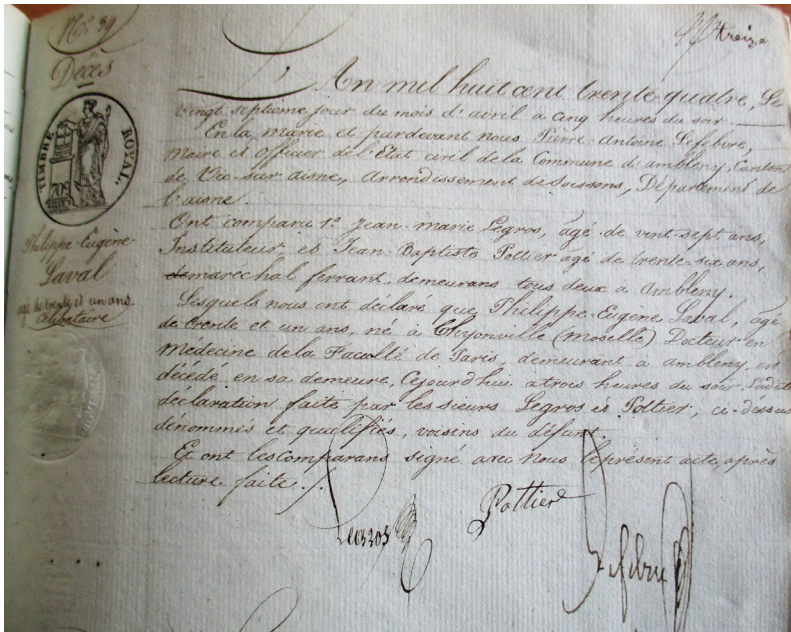 N.º 39
Décès
TIMBRE ROYAL.
Philippe-Eugène
Laval
agé de trente et un ans.
Célibataire
treize
L'An mil huit cent trente-quatre, Le
vingt septieme jour du mois d'avril a cinq heures du soir.
En la marie et pardevant nous Pierre-Antoine Lefebvre,
Maire et officier de l'Etat civil de la Commune d'ambleny, Canton
de Vic-sur-aisne, Arrondissement de Soissons, Département de
l'aisne.
Ont comparu 1.º Jean-marie Legros, agé de vint-sept ans,
Instituteur, et Jean-Baptiste Pottier agé de trente-six ans,
marechal ferrant, demeurans tous deux a Ambleny.
Lesquels nous ont déclaré que Philippe-Eugène Laval, agé
de trente et un ans, né à Thyonville (Moselle) Docteur en
Médecine de la Faculté de Paris, demeurant a ambleny, est
décédé en sa demeure, Cejourd'hui a trois heures du soir. Ladite
déclaration faite par les sieurs Legros et Pottier, ci-dessus
dénommés et qualifiés, voisins du défunt.
Et ont les comparans signé avec nous le présent acte, après
lecture faite ./.
Legros
Pottier
Lefebvre